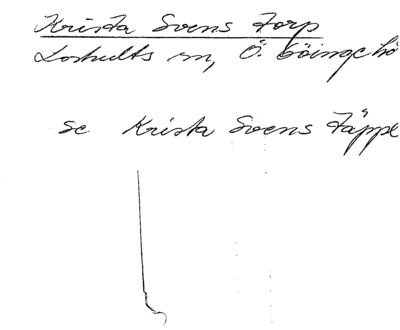 Krista Svens torp
Loshults sn, Ö. Göinge hd
se Krista Svens täppe